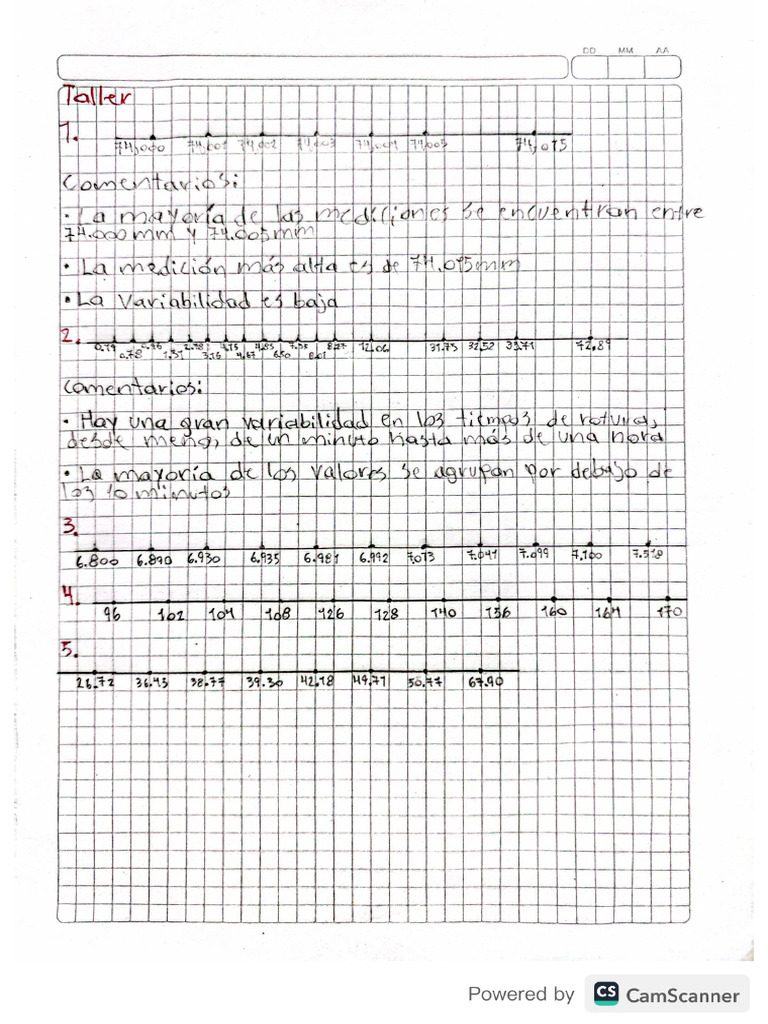 DD MM AA
Taller
1.
74,000 74.001 74.002 74.003 74,004 74.005 74,015
Comentarios:
· La mayoría de las mediciones se encuentran entre
74.000mm y 74.005mm
· La medición más alta es de 74.015mm
· La variabilidad es baja
2.
0.19 0.78 0.96 1.31 2.78 3.16 4.15 4.67 4.85 6.50 7.35 8.01 8.27 12.06 31.75 32.52 33.91 72.89
Comentarios:
· Hay una gran variabilidad en los tiempos de rotura,
desde menos de un minuto hasta más de una hora
· La mayoría de los valores se agrupan por debajo de
los 10 minutos
3.
6.800 6.890 6.930 6.935 6.981 6.992 7.013 7.041 7.099 7.100 7.518
4.
96 102 104 108 126 128 140 156 160 164 170
5.
26.72 36.45 38.77 39.30 42.18 49.71 50.77 67.90
Powered by CS CamScanner